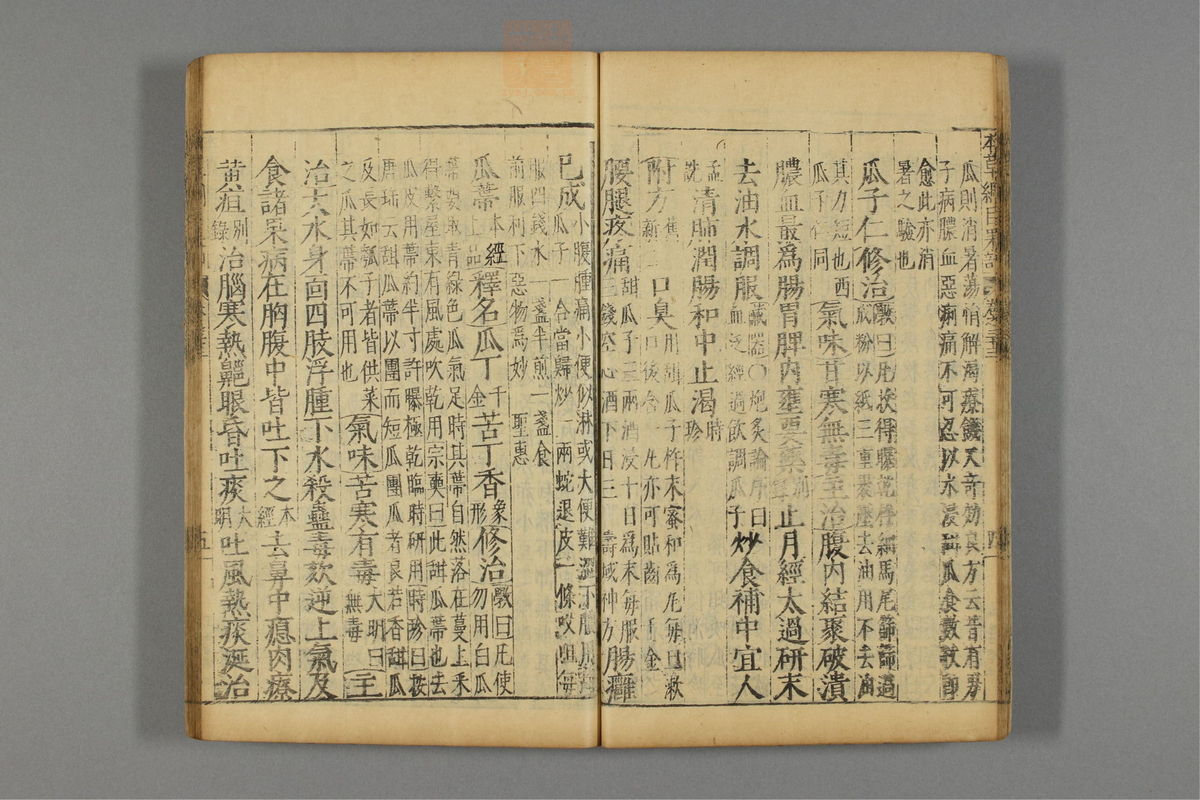 本草綱目果部
瓜則消暑蕩悄解渴療饑又奇効良方云昔有男
子病膿血惡痢痛不可忍以水浸甜瓜食數枚即
愈此亦消
暑之驗也
瓜子仁修治斅曰凡收得曝乾杵細馬尾篩篩過
成粉以紙三重裹壓去油用不去油
其力短也西
瓜子仁同氣味甘寒無毒主治腹內結聚破潰
膿血最爲腸胃脾內壅要藥別錄止月經太過研末
去油水調服藏器○炮炙論序曰血泛經過飲調瓜子炒食補中宜人
孟詵清肺潤腸和中止渴時珍
附方舊一新二口臭用甜瓜子杵末蜜和爲丸每旦漱
口後含一丸亦可貼齒千金
腰腿疼痛甜瓜子三兩酒浸十日爲末每服
三錢空心酒下日三壽域神方腸癰
已成小腹腫痛小便似淋或大便難澀下膿用甜
瓜子一合當歸炒一兩蛇退皮一條㕮咀每
服四錢水一盞半煎一盞食
前服利下惡物爲妙聖惠
瓜葉本經上品釋名瓜丁千金苦丁香象形修治斅曰凡使勿用白瓜
蔕要取青綠色瓜氣足時其蔕自然落在蔓上采
得繫屋東有風處吹乾用宗奭曰此甜瓜蔕也去
瓜皮用蔕約半寸許曝極乾臨時研用時珍曰按
唐瑶云甜瓜蔕以團而短瓜團瓜者良若香甜瓜
及長如瓠子者皆供菜
之瓜其蔕不可用也氣味苦寒有毒大明曰無毒主
治大水身面四肢浮腫下水殺蠱毒欬逆上氣及
食諸果病在胸腹中皆吐下之本經去鼻中瘜肉療
黃疸別錄治腦寒熱齆眼昏吐痰大明吐風熱痰涎治